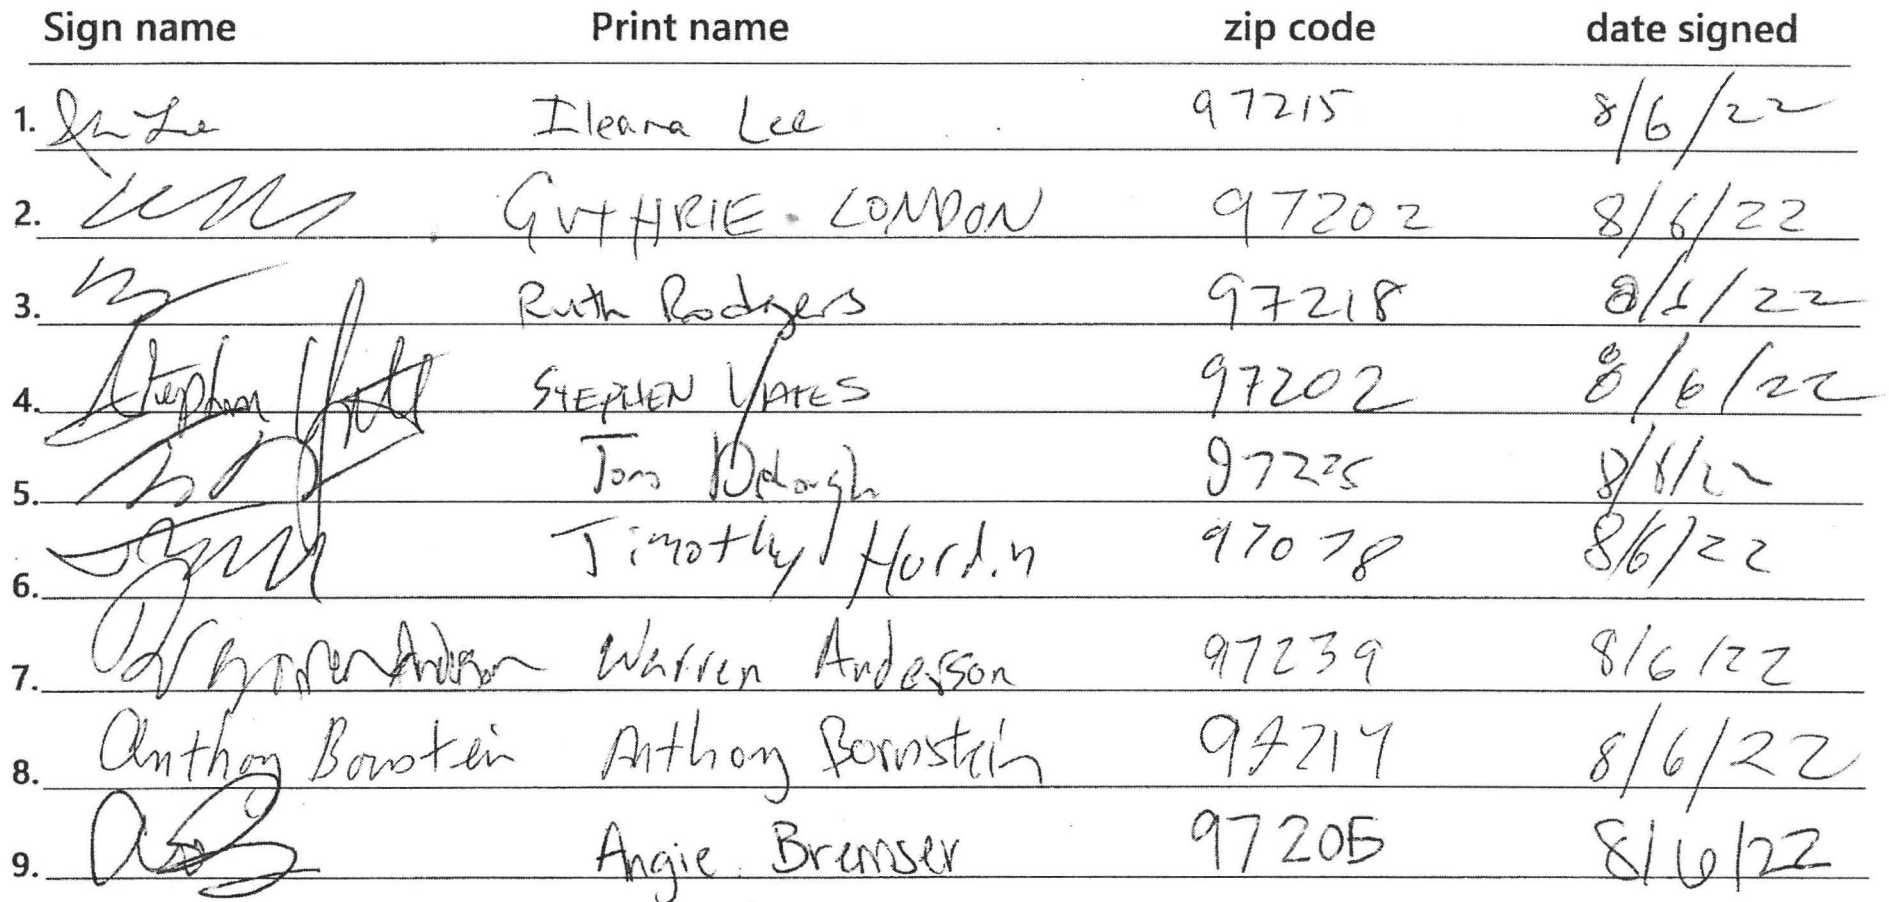 Sign name Print name zip code date signed
1. Ileana Lee 97215 8/6/22
2. GUTHRIE LONDON 97202 8/6/22
3. Ruth Rodgers 97218 8/6/22
4. Stephen Yates STEPHEN YATES 97202 8/6/22
5. Tom 97225 8/6/22
6. Timothy Hardin 97078 8/6/22
7. Warren Anderson Warren Anderson 97239 8/6/22
8. Anthony Bornstein Anthony Bornstein 97214 8/6/22
9. Angie Bremser 97205 8/6/22